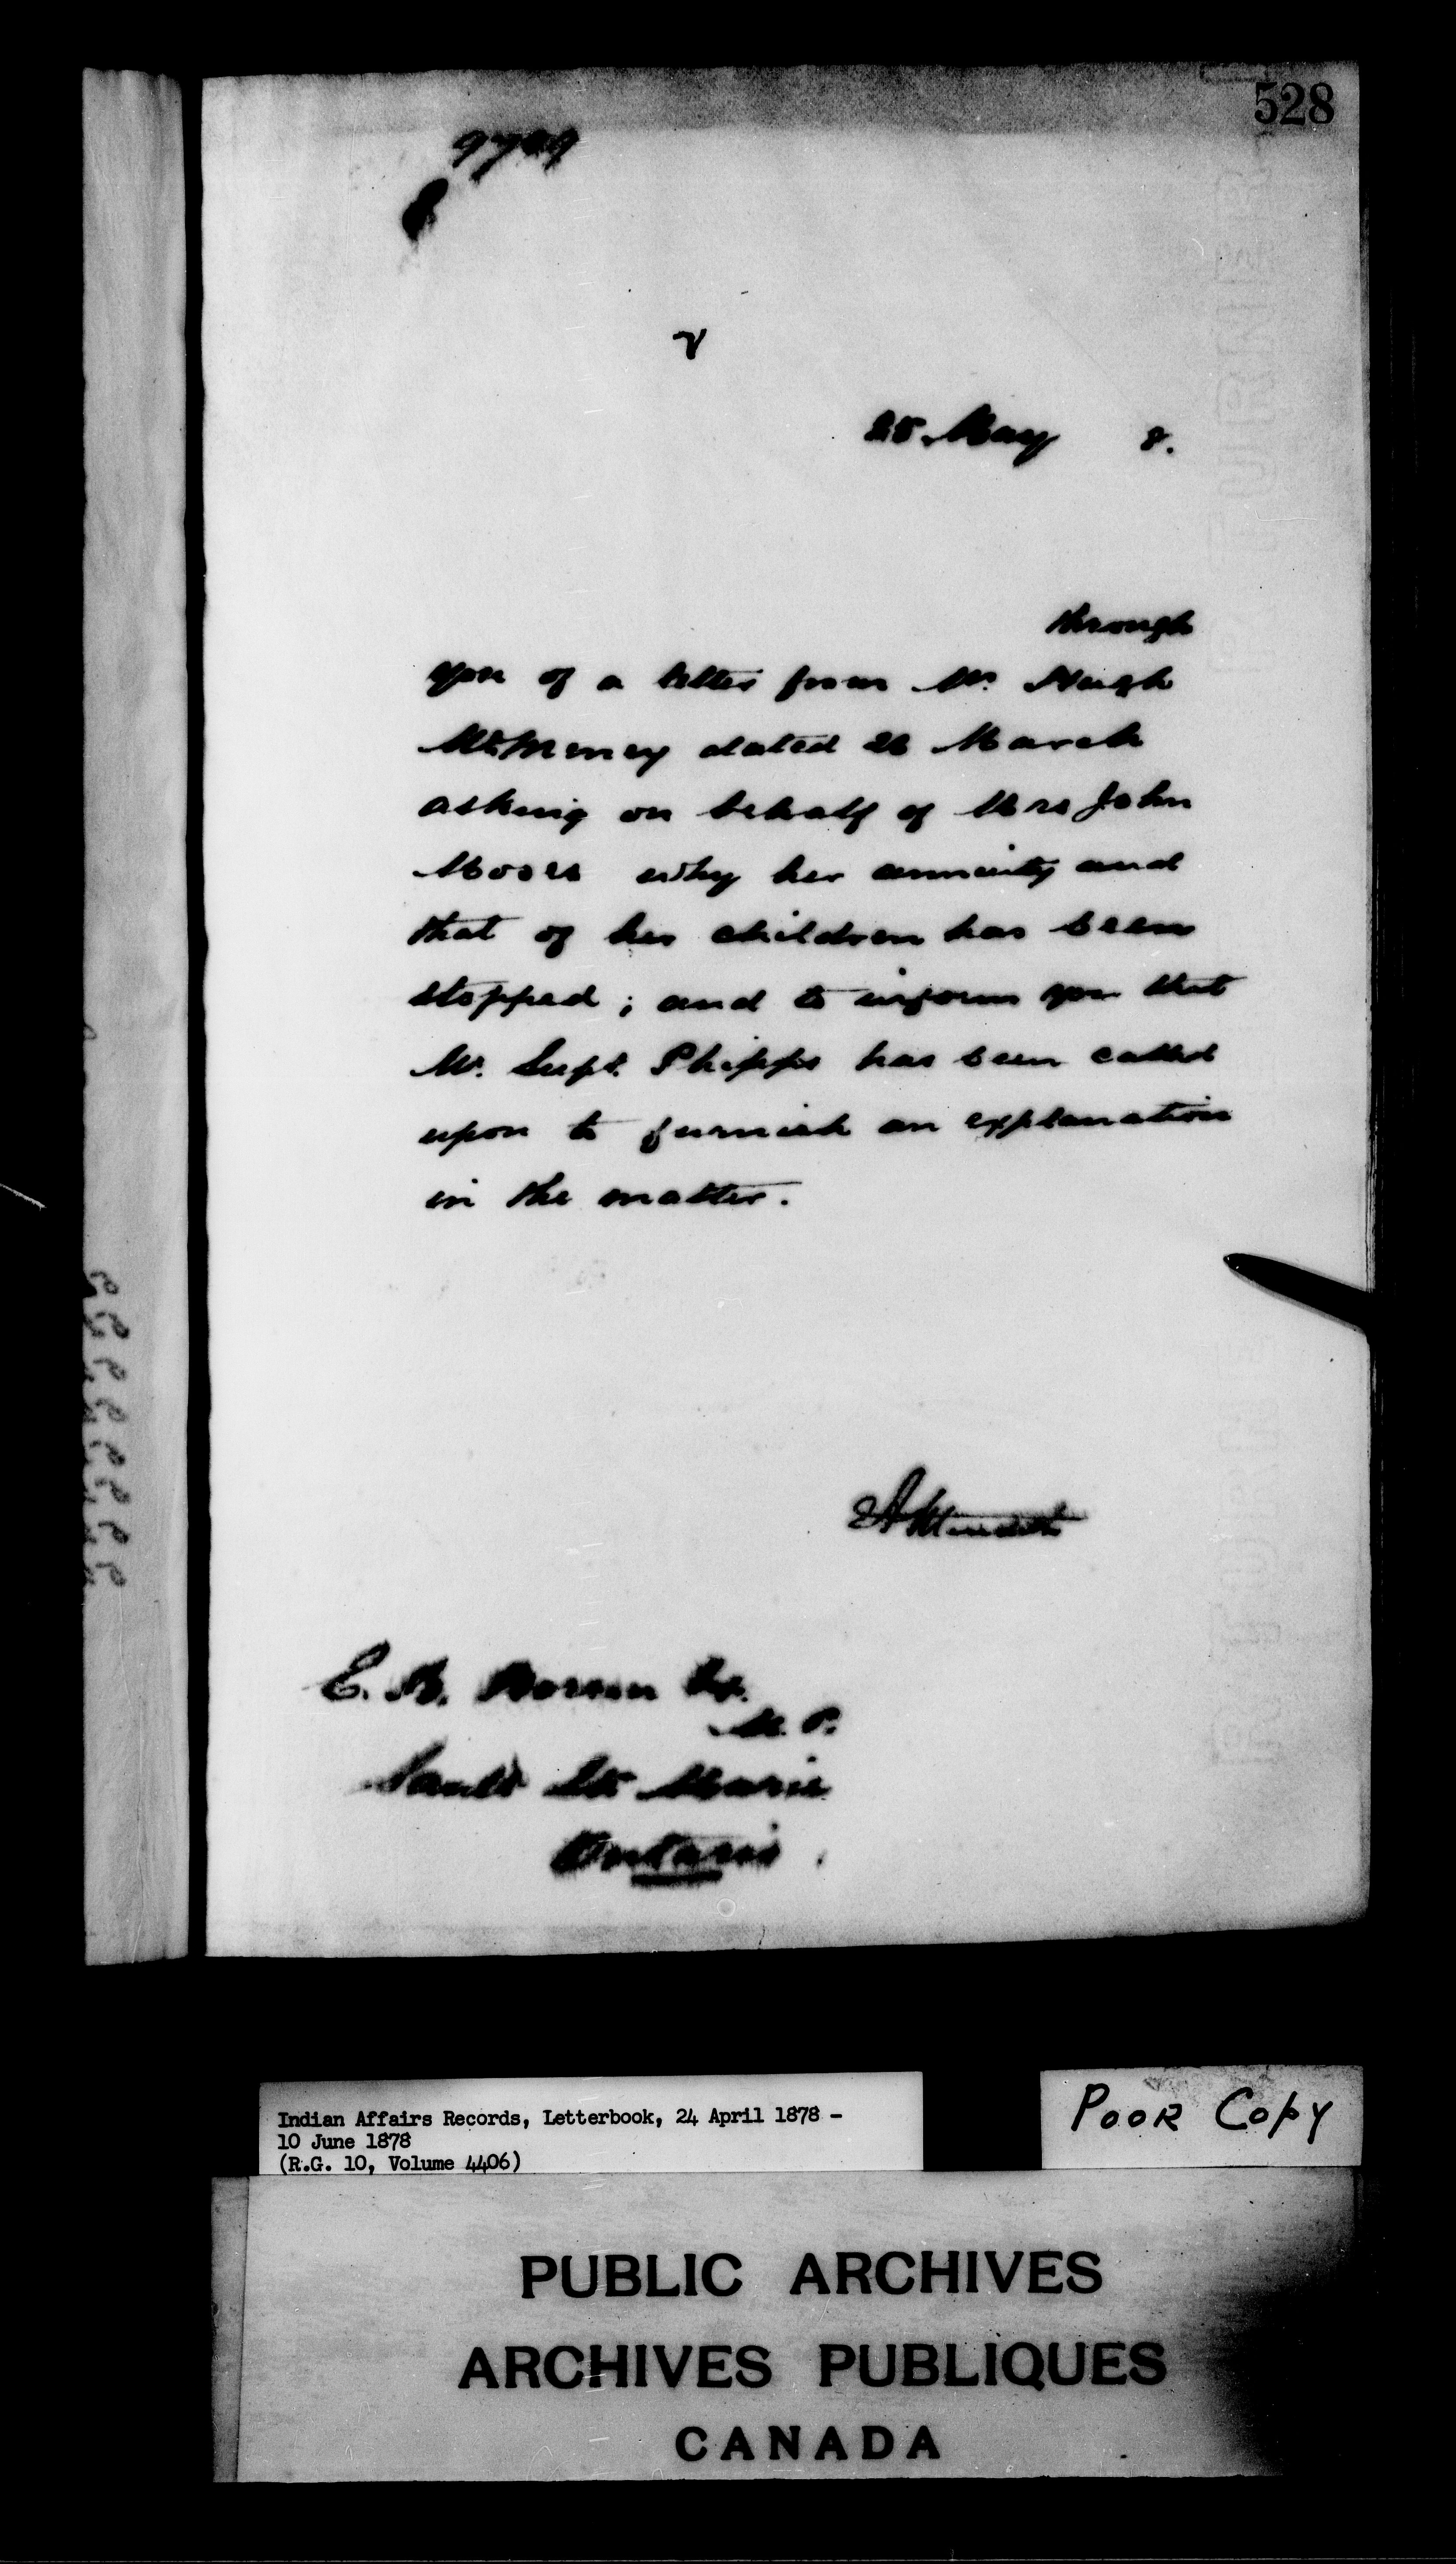 528
25 May 8.
through
you of a letter from Mr. Hugh
dated March
asking on behalf of Mrs John
Moore why her annuity and
that of her children has been
stopped; and to inform you that
Mr. Supt. Phipps has been called
upon to furnish an explanation
in the matter.
E. B. Borron Esq.
M. P.
Sault Ste Marie
Ontario.
Indian Affairs Records, Letterbook, 24 April 1878 -
10 June 1878
(R.G. 10, Volume 4406)
POOR COPY
PUBLIC ARCHIVES
ARCHIVES PUBLIQUES
CANADA